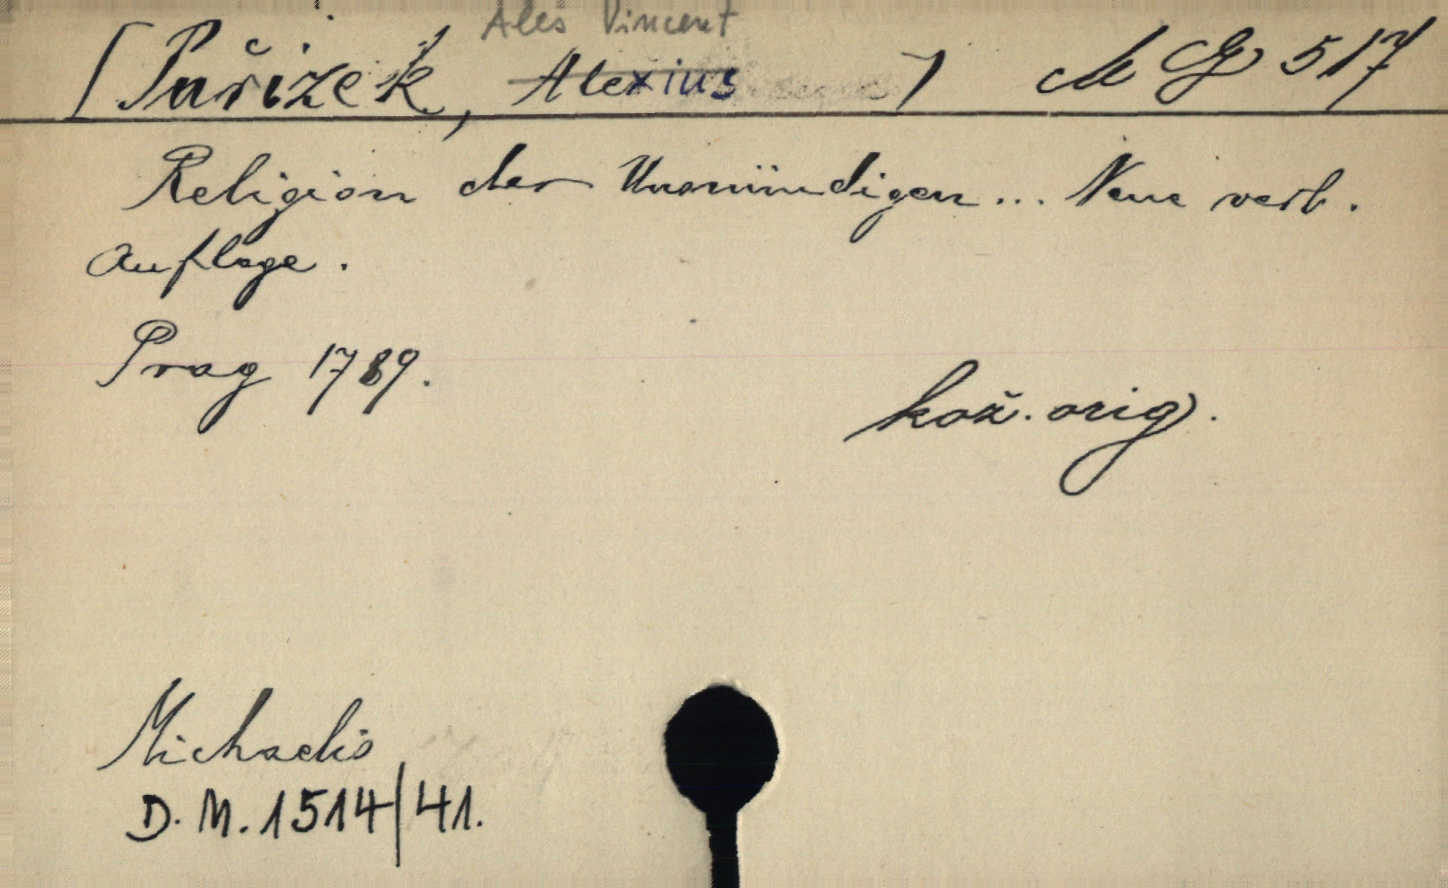 Aleš Vincent
[Pařízek, Alexius] M G 517
Religion der Unmündigen... Neue verb.
Auflage.
Prag 1789.
kož. orig.
Michaelis
D. M. 1514/41.